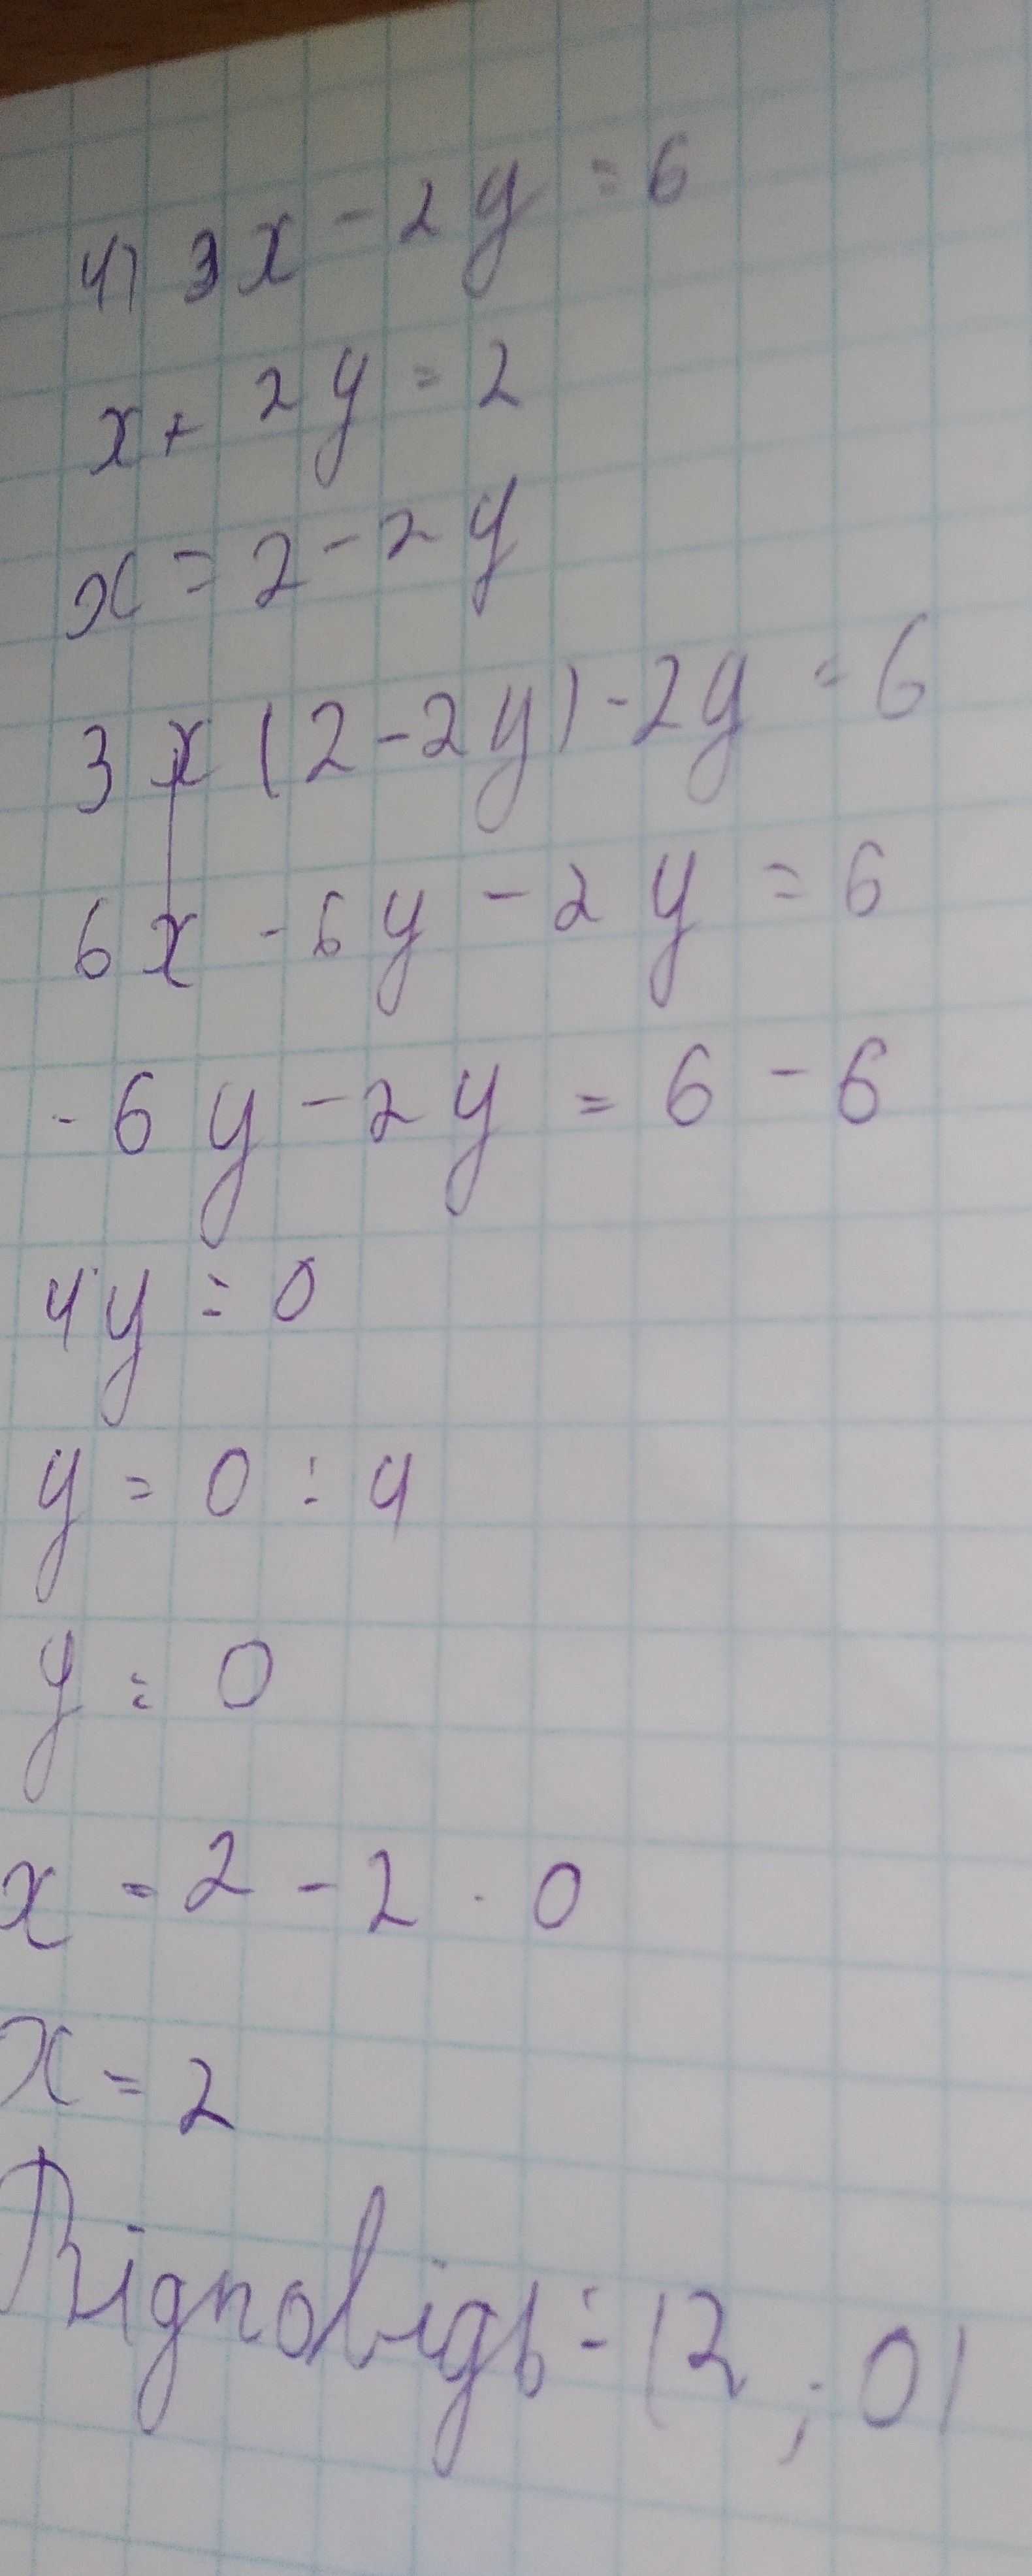 4) 3x - 2y = 6
x + 2y = 2
x = 2 - 2y
3x(2 - 2y) - 2y = 6
6x - 6y - 2y = 6
- 6y - 2y = 6 - 6
4y = 0
y = 0 : 4
y = 0
x = 2 - 2 · 0
x = 2
Відповідь: (2 ; 0)